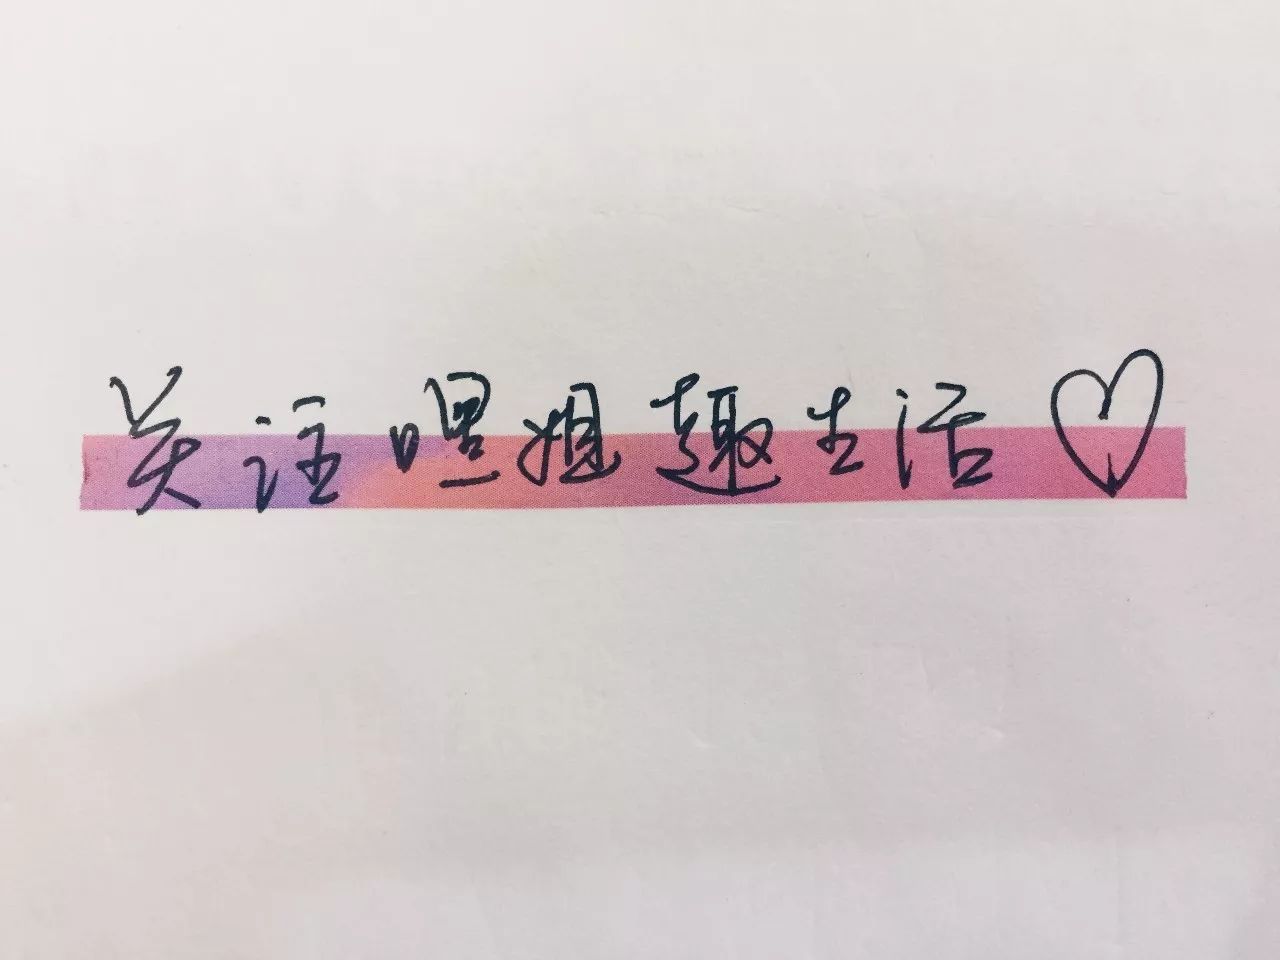 关注嘿姐趣生活♡